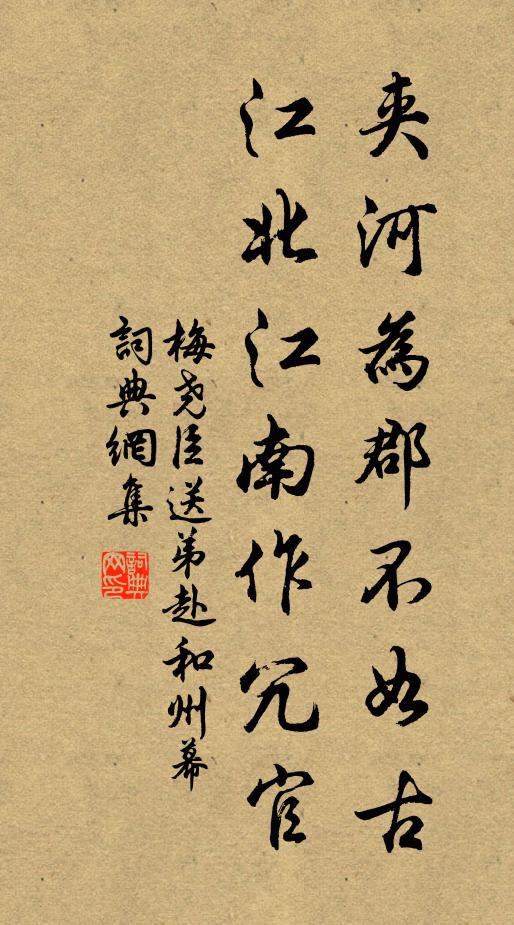 夾河為郡不如古
江北江南作冗官
梅堯臣送弟赴和州幕
詞典網集
詞典網印